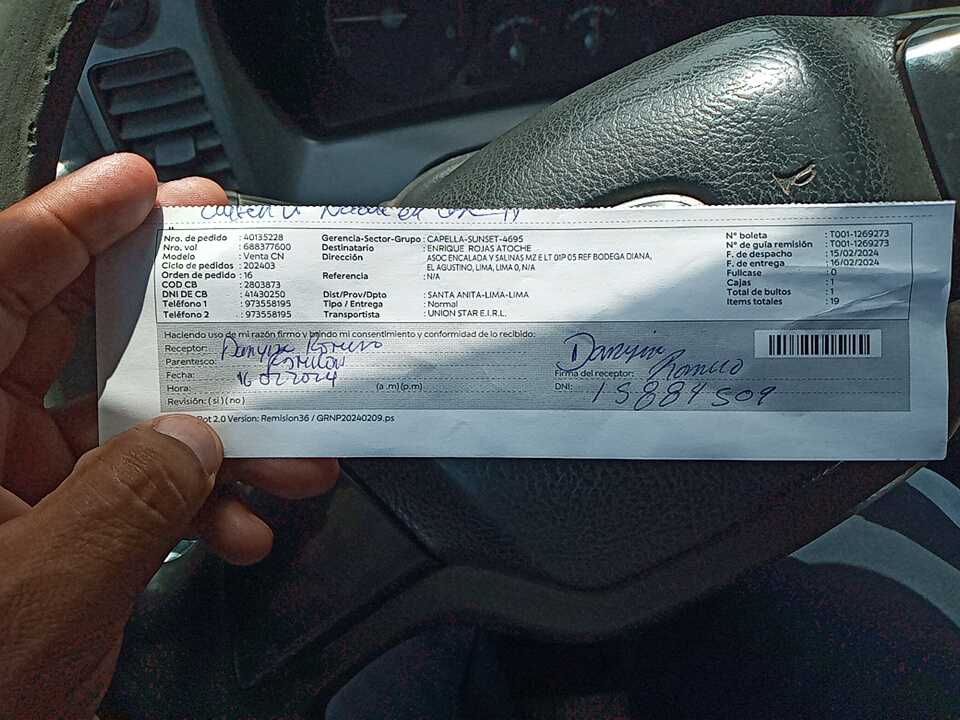 Nro. de pedido : 40135228
Nro. vol : 688377600
Modelo : Venta CN
Ciclo de pedidos : 202403
Orden de pedido : 16
COD CB : 2803873
DNI DE CB : 41430250
Teléfono 1 : 973558195
Teléfono 2 : 973558195
Gerencia-Sector-Grupo : CAPELLA-SUNSET-4695
Destinatario : ENRIQUE ROJAS ATOCHE
Dirección : ASOC ENCALADA Y SALINAS MZ E LT 01P 05 REF BODEGA DIANA,
EL AGUSTINO, LIMA, LIMA 0, N/A
Referencia : N/A
Dist/Prov/Dpto : SANTA ANITA-LIMA-LIMA
Tipo / Entrega : Normal
Transportista : UNION STAR E.I.R.L.
N° boleta : T001-1269273
N° de guía remisión : T001-1269273
F. de despacho : 15/02/2024
F. de entrega : 16/02/2024
Fullcase : 0
Cajas : 1
Total de bultos : 1
Items totales : 19
Haciendo uso de mi razón firmo y brindo mi consentimiento y conformidad de lo recibido:
Receptor: Danyia Romero
Parentesco:
Fecha: 16 02 2024
Hora: (a .m) (p.m)
Revisión: ( si ) ( no )
Danyia Romero
Firma del receptor:
DNI: 15884509
Pot 2.0 Version: Remision36 / GRNP20240209.ps